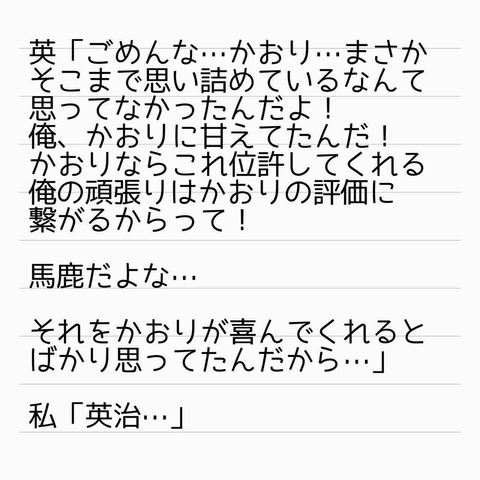 英「ごめんな…かおり…まさか
そこまで思い詰めているなんて
思ってなかったんだよ！
俺、かおりに甘えてたんだ！
かおりならこれ位許してくれる
俺の頑張りはかおりの評価に
繋がるからって！
馬鹿だよな…
それをかおりが喜んでくれると
ばかり思ってたんだから…」
私「英治…」